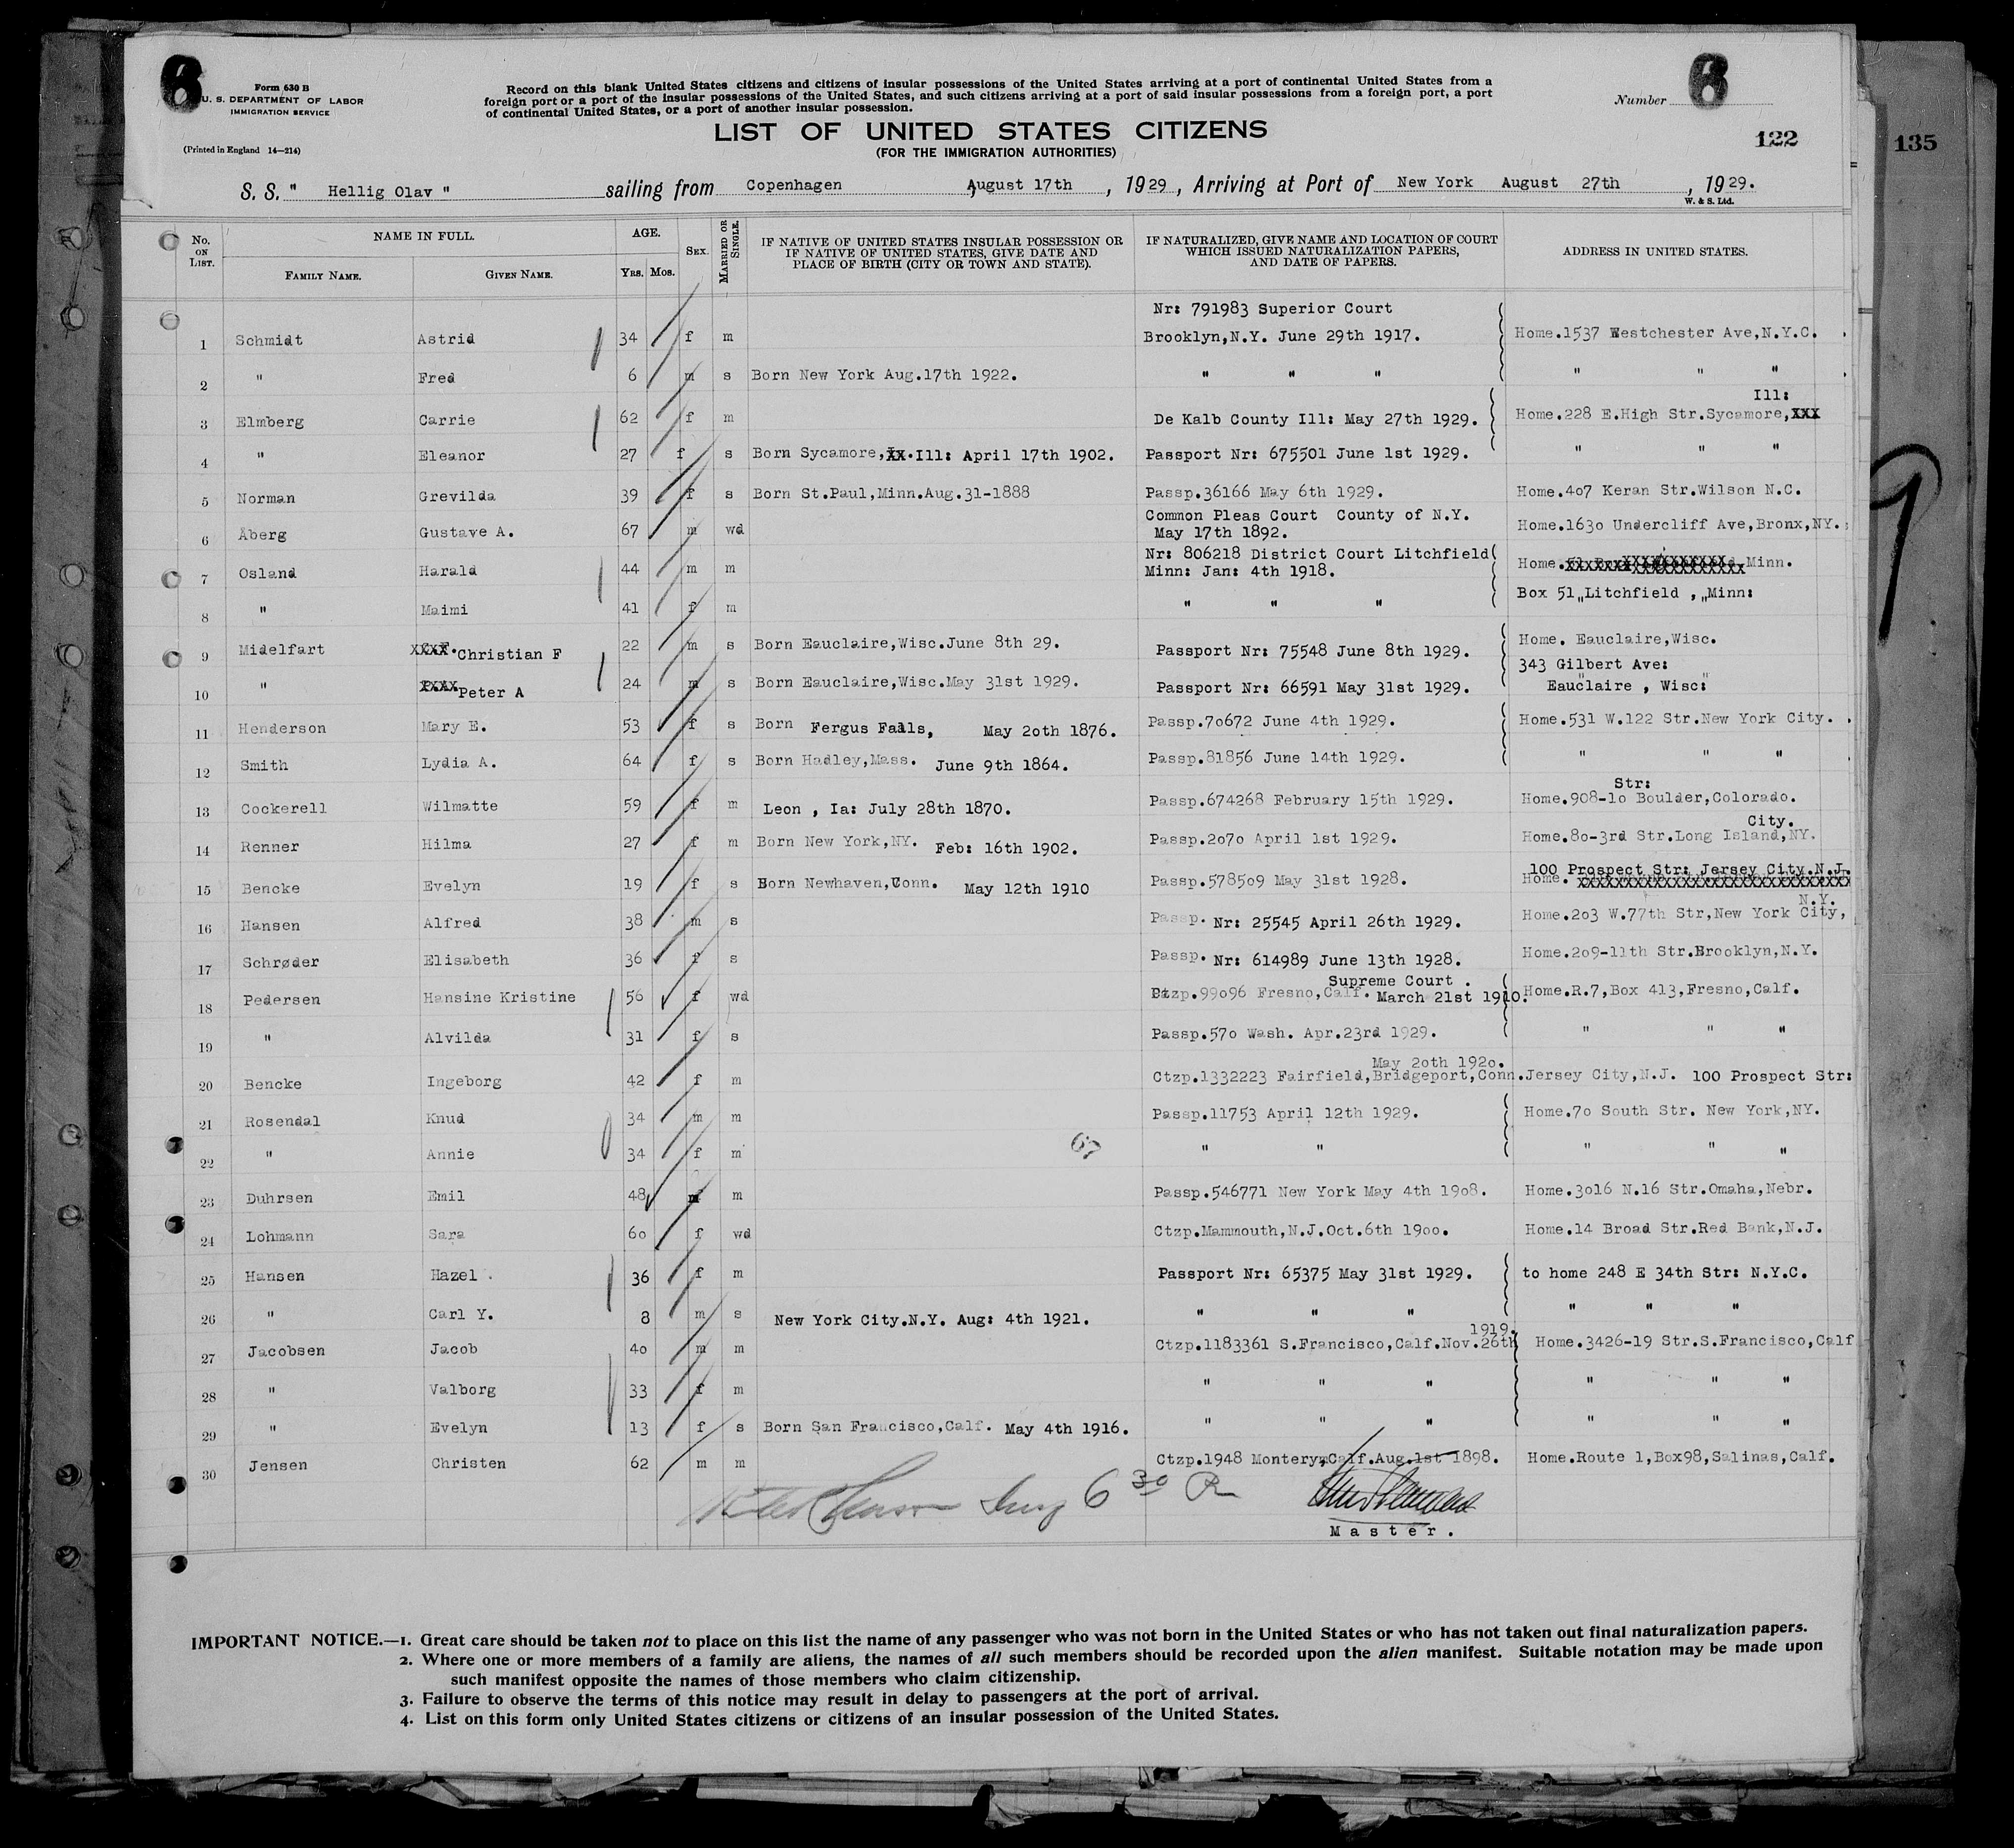 6
6
Form 630 B
U. S. DEPARTMENT OF LABOR
IMMIGRATION SERVICE
(Printed in England 14—214)
Record on this blank United States citizens and citizens of insular possessions of the United States arriving at a port of continental United States from a
foreign port or a port of the insular possessions of the United States, and such citizens arriving at a port of said insular possessions from a foreign port, a port
of continental United States, or a port of another insular possession.
Number
LIST OF UNITED STATES CITIZENS
(FOR THE IMMIGRATION AUTHORITIES)
122
135
S. S. " Hellig Olav " sailing from Copenhagen August 17th, 1929, Arriving at Port of New York August 27th, 1929.
W. & S. Ltd.
No. ON LIST. NAME IN FULL. FAMILY NAME. GIVEN NAME. AGE. YRS. MOS. SEX. MARRIED OR SINGLE. IF NATIVE OF UNITED STATES INSULAR POSSESSION OR IF NATIVE OF UNITED STATES, GIVE DATE AND PLACE OF BIRTH (CITY OR TOWN AND STATE). IF NATURALIZED, GIVE NAME AND LOCATION OF COURT WHICH ISSUED NATURALIZATION PAPERS, AND DATE OF PAPERS. ADDRESS IN UNITED STATES.
Nr: 791983 Superior Court
1 Schmidt Astrid 34 f m Brooklyn,N.Y. June 29th 1917. Home.1537 Westchester Ave,N.Y.C.
2 " Fred 6 m s Born New York Aug.17th 1922. " " " " " "
Ill:
3 Elmberg Carrie 62 f m De Kalb County Ill: May 27th 1929. Home.228 E.High Str.Sycamore,XXX
4 " Eleanor 27 f s Born Sycamore,XX.Ill: April 17th 1902. Passport Nr: 675501 June 1st 1929. " " "
5 Norman Grevilda 39 f s Born St.Paul,Minn.Aug.31-1888 Passp.36166 May 6th 1929. Home.407 Keran Str.Wilson N.C.
Common Pleas Court County of N.Y.
6 Åberg Gustave A. 67 m wd May 17th 1892. Home.1630 Undercliff Ave,Bronx,NY.
Nr: 806218 District Court Litchfield
7 Osland Harald 44 m m Minn: Jan: 4th 1918. Home. Minn.
8 " Maimi 41 f m " " " Box 51 "Litchfield , "Minn:
9 Midelfart XXXX.Christian F 22 m s Born Eauclaire,Wisc.June 8th 29. Passport Nr: 75548 June 8th 1929. Home. Eauclaire,Wisc.
343 Gilbert Ave:
10 " XXXX Peter A 24 m s Born Eauclaire,Wisc.May 31st 1929. Passport Nr: 66591 May 31st 1929. Eauclaire , Wisc:
11 Henderson Mary E. 53 f s Born Fergus Falls, May 20th 1876. Passp.70672 June 4th 1929. Home.531 W.122 Str.New York City.
12 Smith Lydia A. 64 f s Born Hadley,Mass. June 9th 1864. Passp.81856 June 14th 1929. " " "
Str:
13 Cockerell Wilmatte 59 f m Leon , Ia: July 28th 1870. Passp.674268 February 15th 1929. Home.908-10 Boulder,Colorado.
City.
14 Renner Hilma 27 f m Born New York,NY. Feb: 16th 1902. Passp.2070 April 1st 1929. Home.80-3rd Str.Long Island,NY.
100 Prospect Str: Jersey City.N.J.
15 Bencke Evelyn 19 f s Born Newhaven,Conn. May 12th 1910 Passp.578509 May 31st 1928. Home. XXXXXXXXXXXXXXXXXXXXXXXXXXXX
N.Y.
16 Hansen Alfred 38 m s Passp. Nr: 25545 April 26th 1929. Home.203 W.77th Str,New York City,
17 Schrøder Elisabeth 36 f s Passp. Nr: 614989 June 13th 1928. Home.209-11th Str.Brooklyn,N.Y.
Supreme Court .
18 Pedersen Hansine Kristine 56 f wd Ctzp.99096 Fresno,Calf. March 21st 1910. Home.R.7,Box 413,Fresno,Calf.
19 " Alvilda 31 f s Passp.570 Wash. Apr.23rd 1929. " " "
May 20th 1920.
20 Bencke Ingeborg 42 f m Ctzp.1332223 Fairfield,Bridgeport,Conn. Jersey City,N.J. 100 Prospect Str:
21 Rosendal Knud 34 m m Passp.11753 April 12th 1929. Home.70 South Str. New York,NY.
22 " Annie 34 f m " " " " "
67
23 Duhrsen Emil 48 m m Passp.546771 New York May 4th 1908. Home.3016 N.16 Str.Omaha,Nebr.
24 Lohmann Sara 60 f wd Ctzp.Mammouth,N.J.Oct.6th 1900. Home.14 Broad Str.Red Bank,N.J.
25 Hansen Hazel . 36 f m Passport Nr: 65375 May 31st 1929. to home 248 E 34th Str: N.Y.C.
26 " Carl Y. 8 m s New York City.N.Y. Aug: 4th 1921. " " " " " "
1919.
27 Jacobsen Jacob 40 m m Ctzp.1183361 S.Francisco,Calf.Nov.26th Home.3426-19 Str.S.Francisco,Calf
28 " Valborg 33 f m " " " " " "
29 " Evelyn 13 f s Born San Francisco,Calf. May 4th 1916. " " " " " "
30 Jensen Christen 62 m m Ctzp.1948 Montery,Calf.Aug.1st 1898. Home.Route 1,Box98,Salinas,Calf.
Insp 6 30 R
Master.
IMPORTANT NOTICE.—1. Great care should be taken not to place on this list the name of any passenger who was not born in the United States or who has not taken out final naturalization papers.
2. Where one or more members of a family are aliens, the names of all such members should be recorded upon the alien manifest. Suitable notation may be made upon
such manifest opposite the names of those members who claim citizenship.
3. Failure to observe the terms of this notice may result in delay to passengers at the port of arrival.
4. List on this form only United States citizens or citizens of an insular possession of the United States.